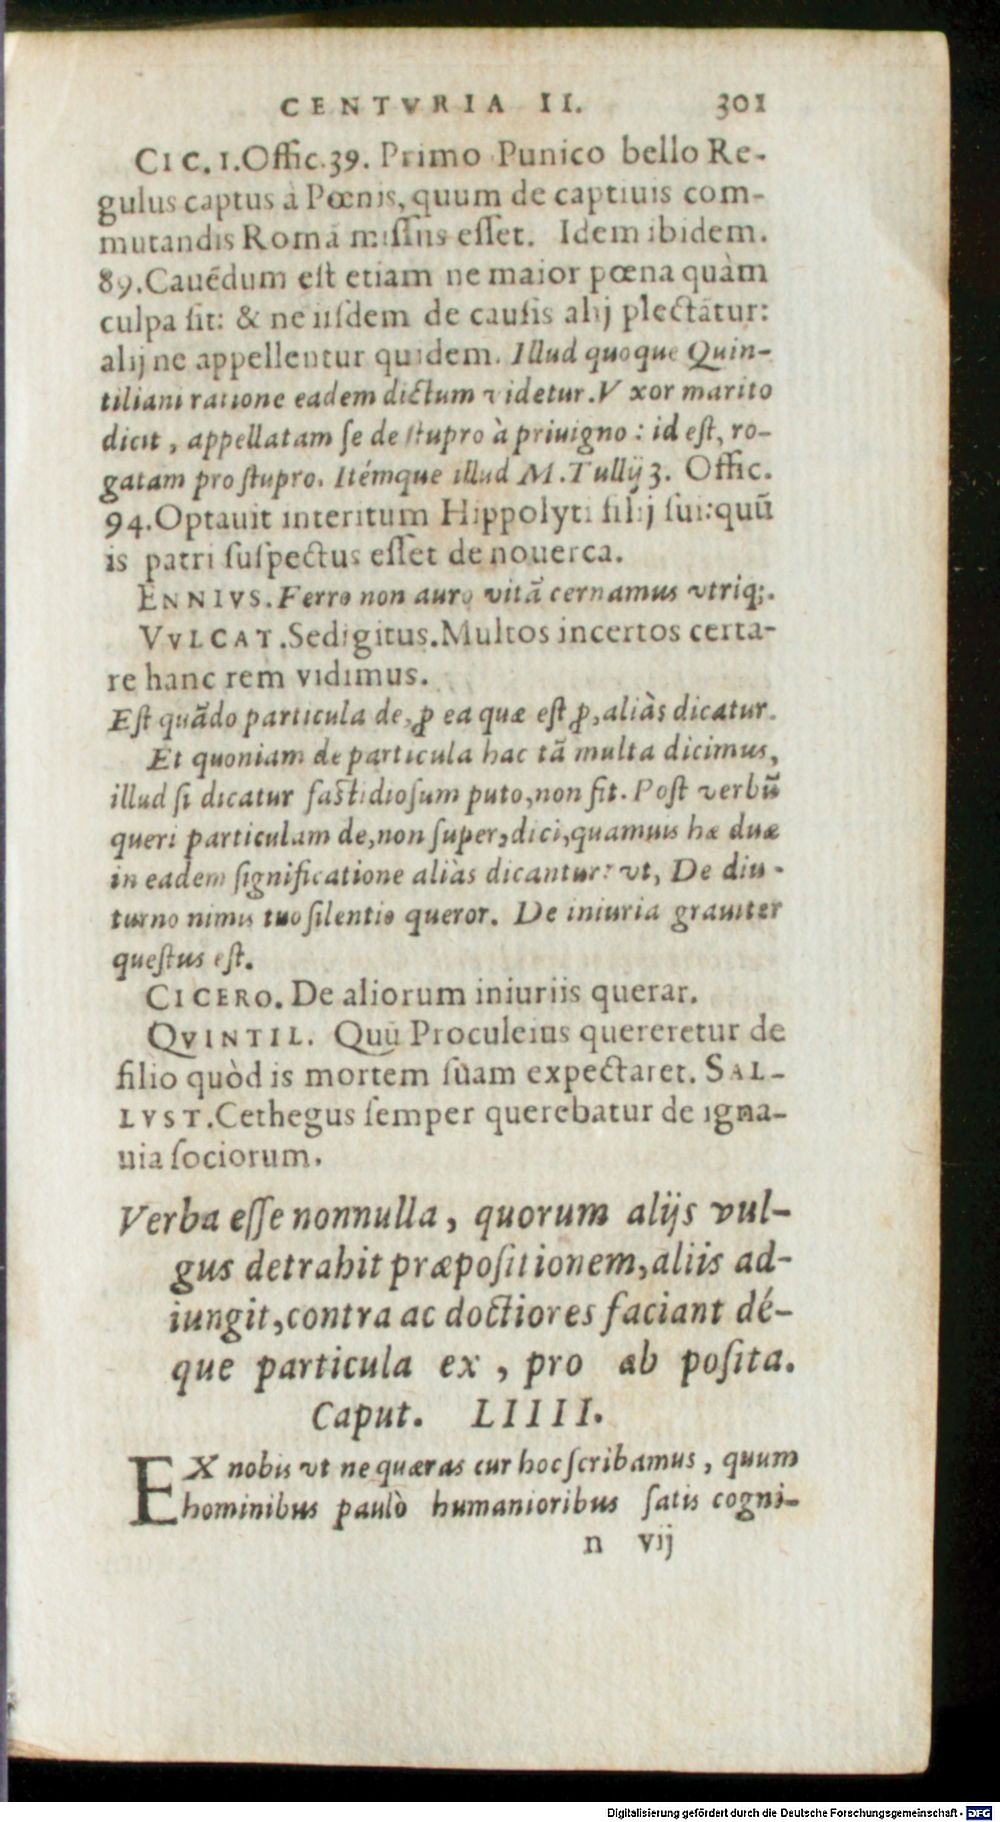 CENTVRIA II. 301
CIC. 1. Offic. 39. Primo Punico bello Re-
gulus captus à Pœnis, quum de captiuis com-
mutandis Romã missus esset. Idem ibidem.
89. Cauẽdum est etiam ne maior pœna quàm
culpa sit: & ne iisdem de causis alij plectãtur:
alij ne appellentur quidem. Illud quoque Quin-
tiliani ratione eadem dictum videtur. Vxor marito
dicit, appellatam se de stupro à priuigno: id est, ro-
gatam pro stupro. Itémque illud M. Tullij 3. Offic.
94. Optauit interitum Hippolyti filij sui: quũ
is patri suspectus esset de nouerca.
ENNIVS. Ferro non auro vitã cernamus vtriq;.
VVLCAT. Sedigitus. Multos incertos certa-
re hanc rem vidimus.
Est quãdo particula de, ꝓ ea quæ est ꝓ, aliàs dicatur.
Et quoniam de particula hac tã multa dicimus,
illud si dicatur fastidiosum puto, non fit. Post verbũ
queri particulam de, non super, dici, quamuis hæ duæ
in eadem significatione aliàs dicantur: vt, De diu-
turno nimis tuo silentio queror. De iniuria grauiter
questus est.
CICERO. De aliorum iniuriis querar.
QVINTIL. Quũ Proculeius quereretur de
filio quòd is mortem suam expectaret. SAL-
LVST. Cethegus semper querebatur de igna-
uia sociorum.
Verba esse nonnulla, quorum alijs vul-
gus detrahit præpositionem, aliis ad-
iungit, contra ac doctiores faciant dé-
que particula ex, pro ab posita.
Caput. LIIII.
EX nobis vt ne quæras cur hoc scribamus, quum
hominibus paulò humanioribus satis cogni-
n vij
Digitalisierung gefördert durch die Deutsche Forschungsgemeinschaft - DFG